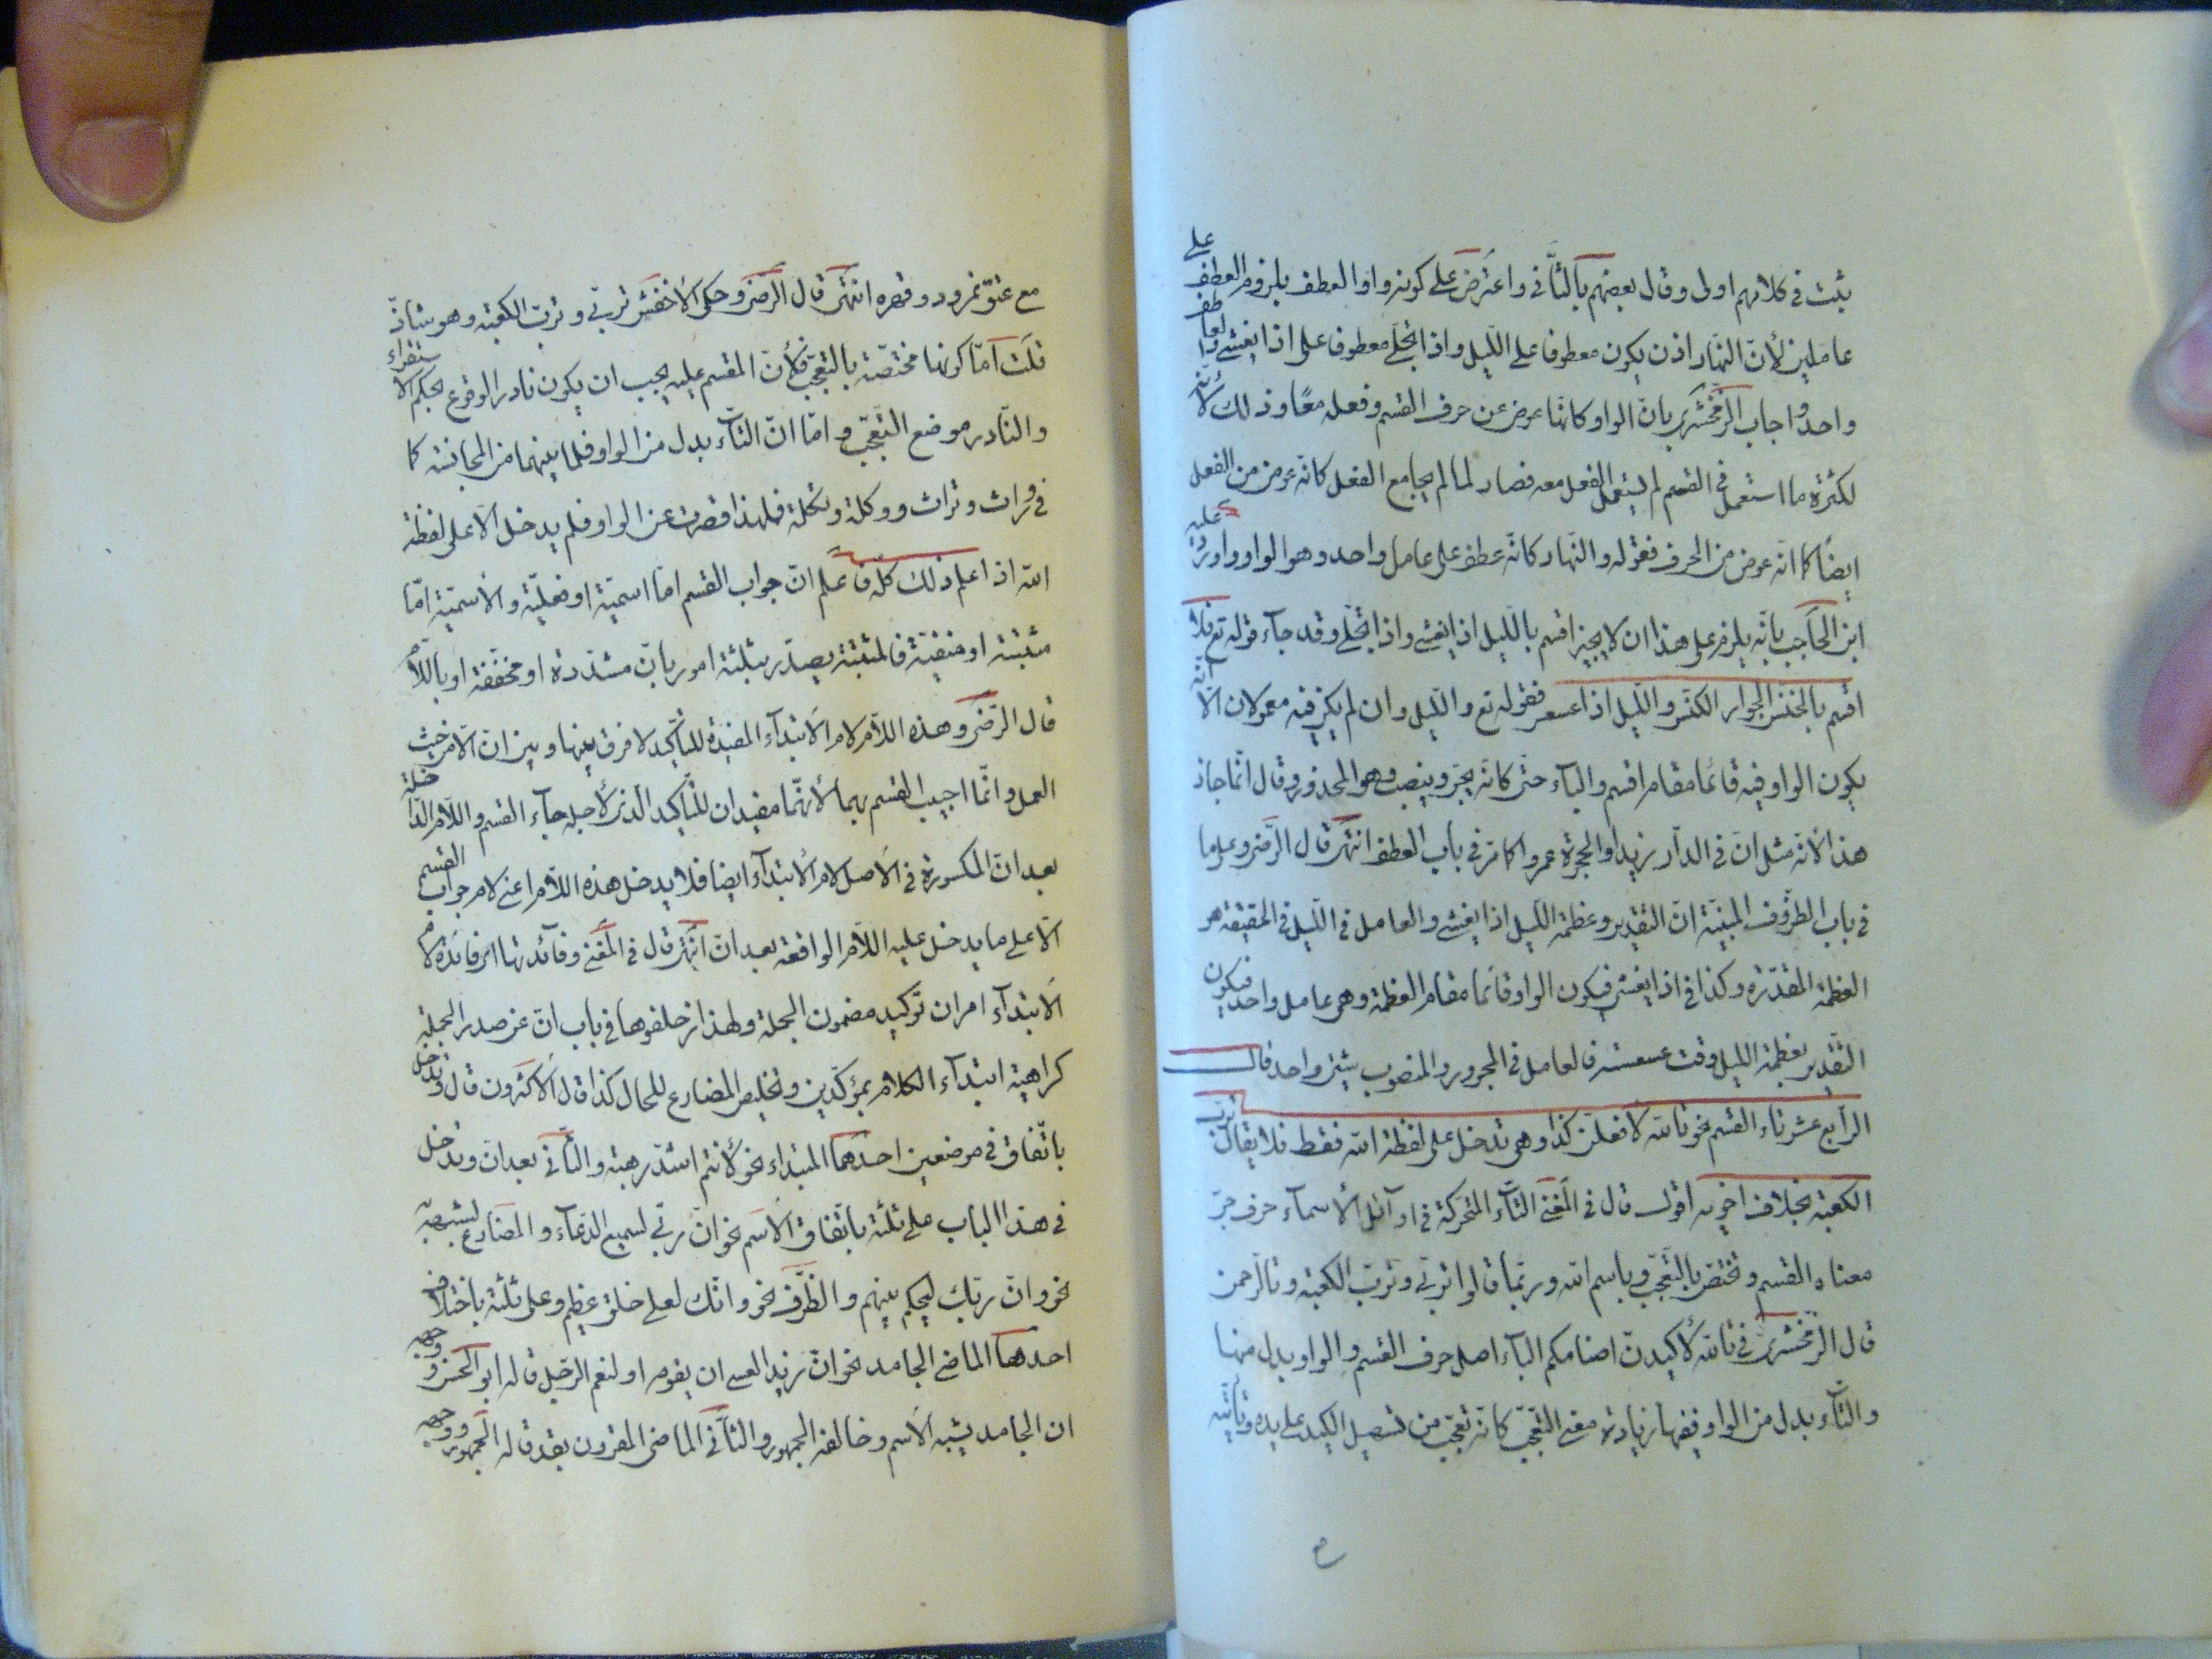 يثبت في كلامهم اولى وقال بعضهم بالثاني واعترض على كونه واو العطف يلزوم العطف على
عاملين لأن النهار اذن يكون معطوفا على الليل واذا تجلى معطوفا على اذا يغشى والعاطف
واحد واجاب الزمخشري بان الواو كانها عوض عن حرف القسم وفعله معًا وذلك لأنه
لكثرة ما استعمل في القسم لم يستعمل الفعل معه فصار لما لم يجامع الفعل كانه عوض من الفعل
ايضًا كما انه عوض من الحرف فقوله والنهار كانه عطف على عامل واحد وهو الواو واورد عليه
ابن الحاجب بانه يلزم على هذا ان لا يجيز اقسم بالليل اذا يغشى واذا تجلى وقد جاء قوله تع فلا
اقسم بالخنس الجوار الكنس والليل اذا عسعس فقوله تع والليل وان لم يكن فيه معمولان الا انه
يكون الواو فيه قائما مقام اقسم والباء حتى كانه يجر وينصب وهو المحذور وقال انما جاز
هذا لأنه مثل ان في الدار زيدا والحجرة عمروا كما مر في باب العطف انتهى قال الرضي وعلى ما
في باب الظروف المبنية ان التقدير وعظمة الليل اذا يغشى والعامل في الليل في الحقيقة هو
العظمة المقدرة وكذا في اذا يغشى فيكون الواو قائما مقام العظمة وهي عامل واحد فيكون
التقدير بعظمة الليل وقت عسعسته فالعامل في المجرور والمنصوب شيئ واحد قال
الرابع عشر تاء القسم نحو تالله لأفعلن كذا وهي تدخل على لفظة الله فقط فلا يقال ترب
الكعبة بخلاف اخويه اقول قال في المغني التاء المتحركة في اوائل الأسماء حرف جر
معناه القسم وتختص بالتعجب وباسم الله وربما قالوا تربي وترب الكعبة وتالرحمن
قال الزمخشري في تالله لأكيدن اصنامكم الباء اصل حرف القسم والواو بدل منها
والتاء بدل من الواو وفيها زيادة معنى التعجب كانه تعجب من تسهيل الكيد على يده وتأتيه
مع عتو نمرود وقهره انتهى قال الرضي وحكى الأخفش تربي وترب الكعبة وهو شاذ
قلت اما كونها مختصة بالتعجب فلأن المقسم عليه يجب ان يكون نادر الوقوع بحكم الاستقراء
والنادر موضع التعجب واما ان التاء بدل من الواو فلما بينهما من المجانسة كما
في وراث وتراث ووكلة وتكلة فلهذا قصرت عن الواو فلم يدخل الا على لفظة
الله اذا علم ذلك كله فاعلم ان جواب القسم اما اسمية او فعلية والاسمية اما
مثبتة او منفية فالمثبتة يصدر بثلثة امور بان مشددة او مخففة او باللام
قال الرضي وهذه اللام لام الابتداء المفيدة للتأكيد لا فرق بينها وبين ان الا من حيث
العمل وانما اجيب القسم بهما لأنهما مفيدان للتأكيد الذي لأجله جاء القسم واللام الداخلة
بعد ان المكسورة في الاصل لام الابتداء ايضا فلا يدخل هذه اللام اعني لام جواب القسم
الا على ما يدخل عليه اللام الواقعة بعد ان انتهى قال في المغني وفائدتها اي فائدة لام
الابتداء امران توكيد مضمون الجملة ولهذا زحلقوها في باب ان عن صدر الجملة
كراهية ابتداء الكلام بمؤكدين وتخليص المضارع للحال كذا قال الاكثرون قال وتدخل
باتفاق في موضعين احدهما المبتداء نحو لأنتم اشد رهبة والثاني بعد ان وتدخل
في هذا الباب على ثلثة باتفاق الاسم نحو ان ربي لسميع الدعاء والمضارع لشبهه به
نحو وان ربك ليحكم بينهم والظرف نحو وانك لعلى خلق عظيم وعلى ثلثة باختلاف
احدها الماضي الجامد نحو ان زيدا لعسى ان يقوم او لنعم الرجل قاله ابو الحسن ووجهه
ان الجامد يشبه الاسم وخالفه الجمهور والثاني الماضي المقرون بقد قاله الجمهور ووجهه